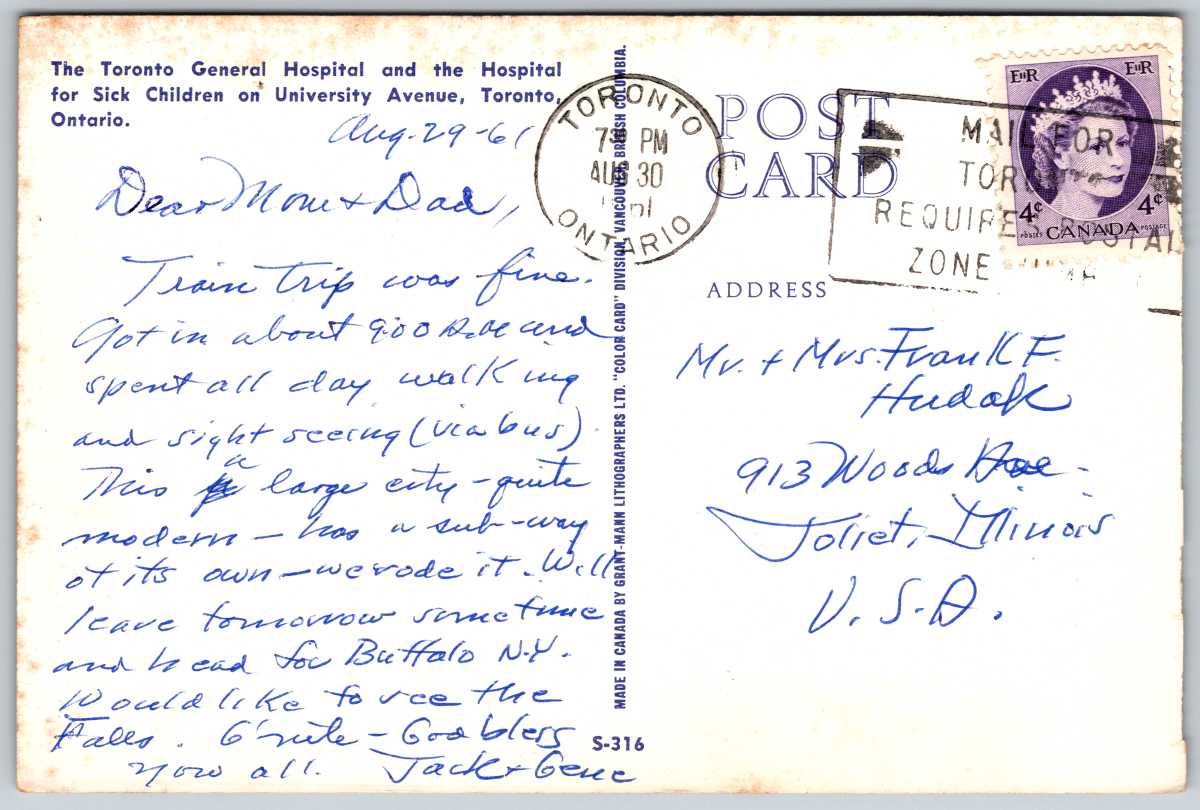 The Toronto General Hospital and the Hospital
for Sick Children on University Avenue, Toronto,
Ontario.
Aug-29-61
Dear Mom + Dad,
Train trip was fine.
Got in about 9:00 A.M. and
spent all day walking
and sight seeing (via bus).
This a large city - quite
modern - has a sub-way
of its own - we rode it. Will
leave tomorrow sometime
and head for Buffalo N.Y.
Would like to see the
Falls. G'nite - God bless
you all. Jack + Gene
S-316
MADE IN CANADA BY GRANT-MANN LITHOGRAPHERS LTD. "COLOR CARD" DIVISION, VANCOUVER, BRITISH COLUMBIA.
POST
CARD
TORONTO
PM
AUG 30
ONTARIO
MAIL FOR
REQUIRES POSTAL
ZONE
EIIR EIIR
4¢ 4¢
POSTES CANADA POSTAGE
ADDRESS
Mr. + Mrs. Frank F.
Hudak
913 Woods Ave.
Joliet, Illinois
U.S.A.